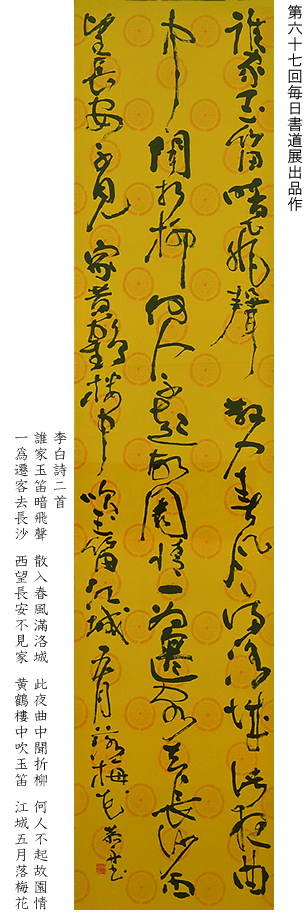 第六十七回毎日書道展出品作
誰家玉笛暗飛聲散入春風滿洛城此夜曲
中聞折柳何人不起故園情一爲遷客去長沙西
望長安不見家黃鶴樓中吹玉笛江城五月落梅花
李白詩二首
誰家玉笛暗飛聲 散入春風滿洛城 此夜曲中聞折柳 何人不起故園情
一爲遷客去長沙 西望長安不見家 黃鶴樓中吹玉笛 江城五月落梅花